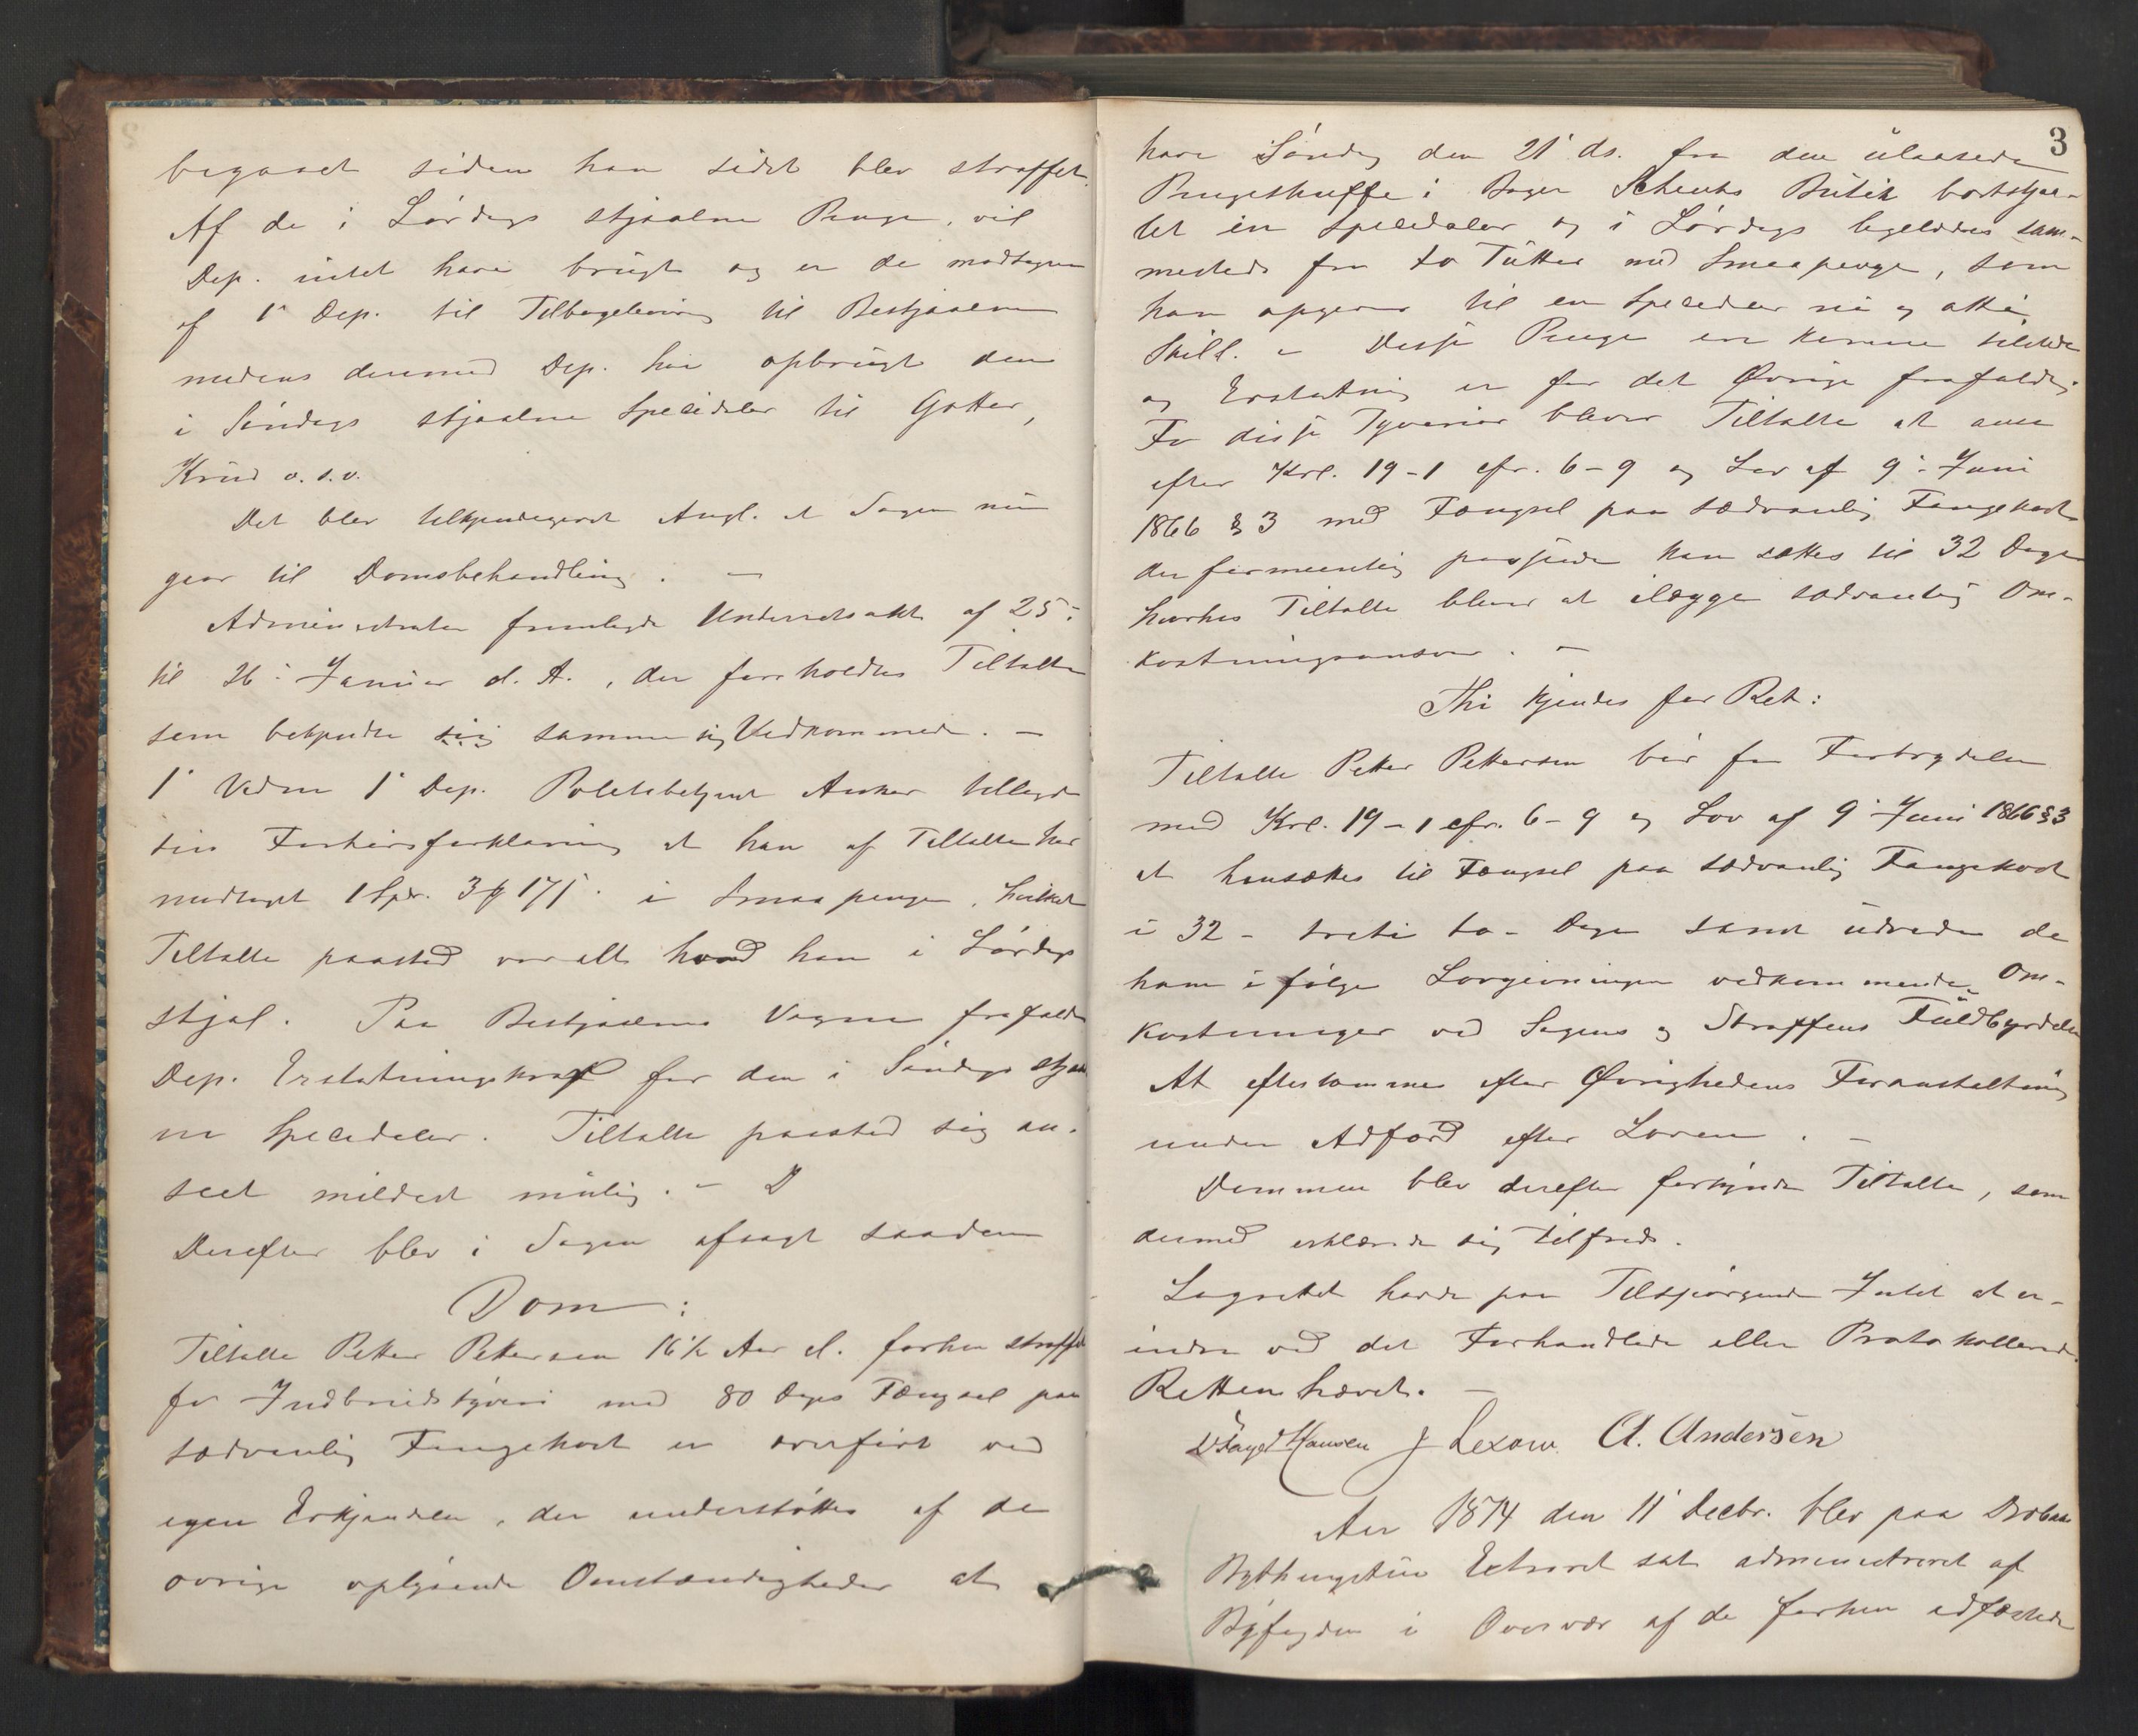 begaaet siden han sidst blev straffet.
Af de i Lørdags stjaalne Penge, vil
Dep. intet have brugt og er de modtagne
af 1' Dep. til Tilbagelevering til Bestjaalne
medens derimod Dep. har opbrugt den
i Søndags stjaalne Speciedaler til Gotter,
Krud o.s.v.
Det blev tilkjendegivet Angl. at Sagen nu
gaar til Domsbehandling. —
Administrator fremlagde Underretsakt af 25'
til 26' Januar d. A., der forholdtes Tiltalte
som betjendte sig samme sig Vedkommende. —
1' Vidne 1' Dep. Politibetjent Anker tillagde
sin Forhørsforklaring at han af Tiltalte har
modtaget 1 Spd. 3 17 i Smaapenge, hvilket
Tiltalte paastod var alt hvad han i Lørdags
stjal. Paa Bestjaalnes Vegne frafaldt
Dep. Erstatningskrav for den i Søndags stjaal
ne Speciedaler. Tiltalte paastod sig an-
seet mildest mulig. – D
Derefter blev i Sagen afsagt saadan
Dom:
Tiltalte Petter Pettersen 16½ Aar gl. forhen straffet
for Indbrudstyveri med 80 Dages Fængsel paa
sædvanlig Fangekost er overført ved
egen Erkjendelse, der understøttes af de
øvrige oplysende Omstændigheder at
3
have Søndag den 21' ds. fra den ulaasede
Pengeskuffe i Bager Schentz Butik bortstjaa-
let en Speciedaler og i Lørdags ligeledes sam-
mesteds fra to Tutter med Smaapenge, som
han opgiver til en Speciedaler ni og otti
Skill. – Disse Penge ere komne tilstede
og Erstatning er for det Øvrige frafaldt.
For disse Tyverier bliver Tiltalte at anse
efter Krl. 19-1 cfr. 6-9 og Lov af 9' Juni
1866 § 3 med Fængsel paa sædvanlig Fangekost
der formentlig passende kan sættes til 32 Dage
hvorhos Tiltalte bliver at ilægge sædvanlig Om-
kostningsansvar. –
Thi kjendes for Ret:
Tiltalte Petter Pettersen bør for Forbrydelse
mod Krl. 19-1 cfr. 6-9 og Lov af 9' Juni 1866 § 3
at hensættes til Fængsel paa sædvanlig Fangekost
i 32 – treti to – Dage samt udrede de
ham i følge Lovgivningen vedkommende Om-
kostninger ved Sagens og Straffens Fuldbyrdelse
At efterkommes efter Øvrighedens Foranstaltning
under Adfærd efter Loven. –
Dommen blev derefter forkyndt Tiltalte, som
dermed erklærede sig tilfreds.
Lagrettet havde paa Tilspørgende Intet at er-
indre ved det Forhandlede eller Protokollerede.
Retten hævet. –
Hansen J Lexow A. Andersen
Aar 1874 den 11' Decbr. blev paa Drøbak
Bythingstue Extraret sat administreret af
Byfogden i Overvær af de forhen edfæstede